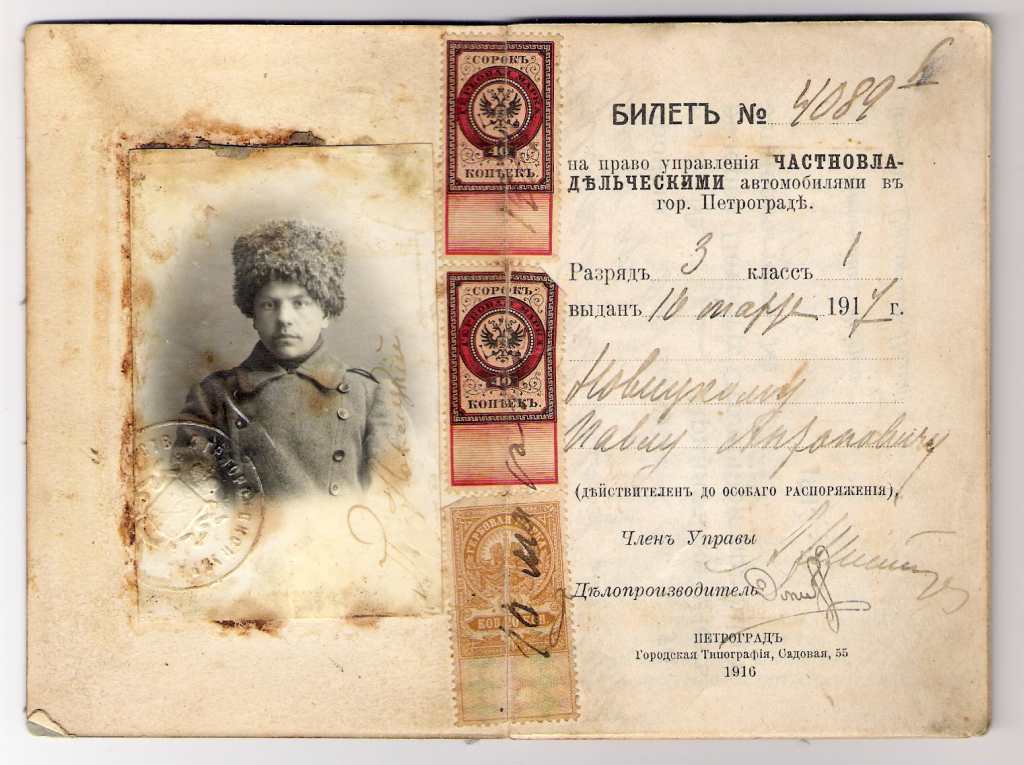 СОРОКЪ
ГЕРБОВАЯ МАРКА
40
КОПѢЕКЪ.
СОРОКЪ
ГЕРБОВАЯ МАРКА
40
КОПѢЕКЪ.
ГЕРБОВАЯ МАРКА
10
БИЛЕТЪ № 4089
на право управленія ЧАСТНОВЛА-
ДѢЛЬЧЕСКИМИ автомобилями въ
гор. Петроградѣ.
Разрядъ 3 классъ 1
выданъ 10 марта 1917 г.
Новицкому
Павлу Антоновичу
(ДѢЙСТВИТЕЛЕНЪ ДО ОСОБАГО РАСПОРЯЖЕНІЯ).
Членъ Управы
Дѣлопроизводитель
ПЕТРОГРАДЪ
Городская Типографія, Садовая, 55
1916